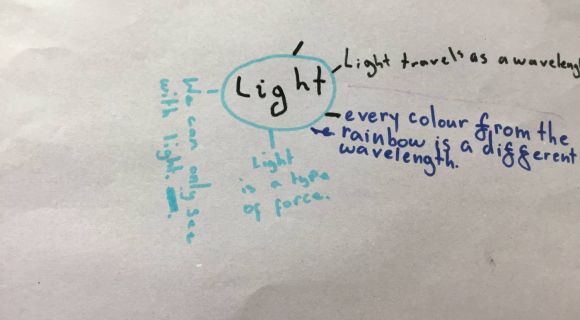 Light
Light travels as a waveleng
every colour from the
rainbow is a different
wavelength.
Light
is a type
of force.
We can only see
with light.